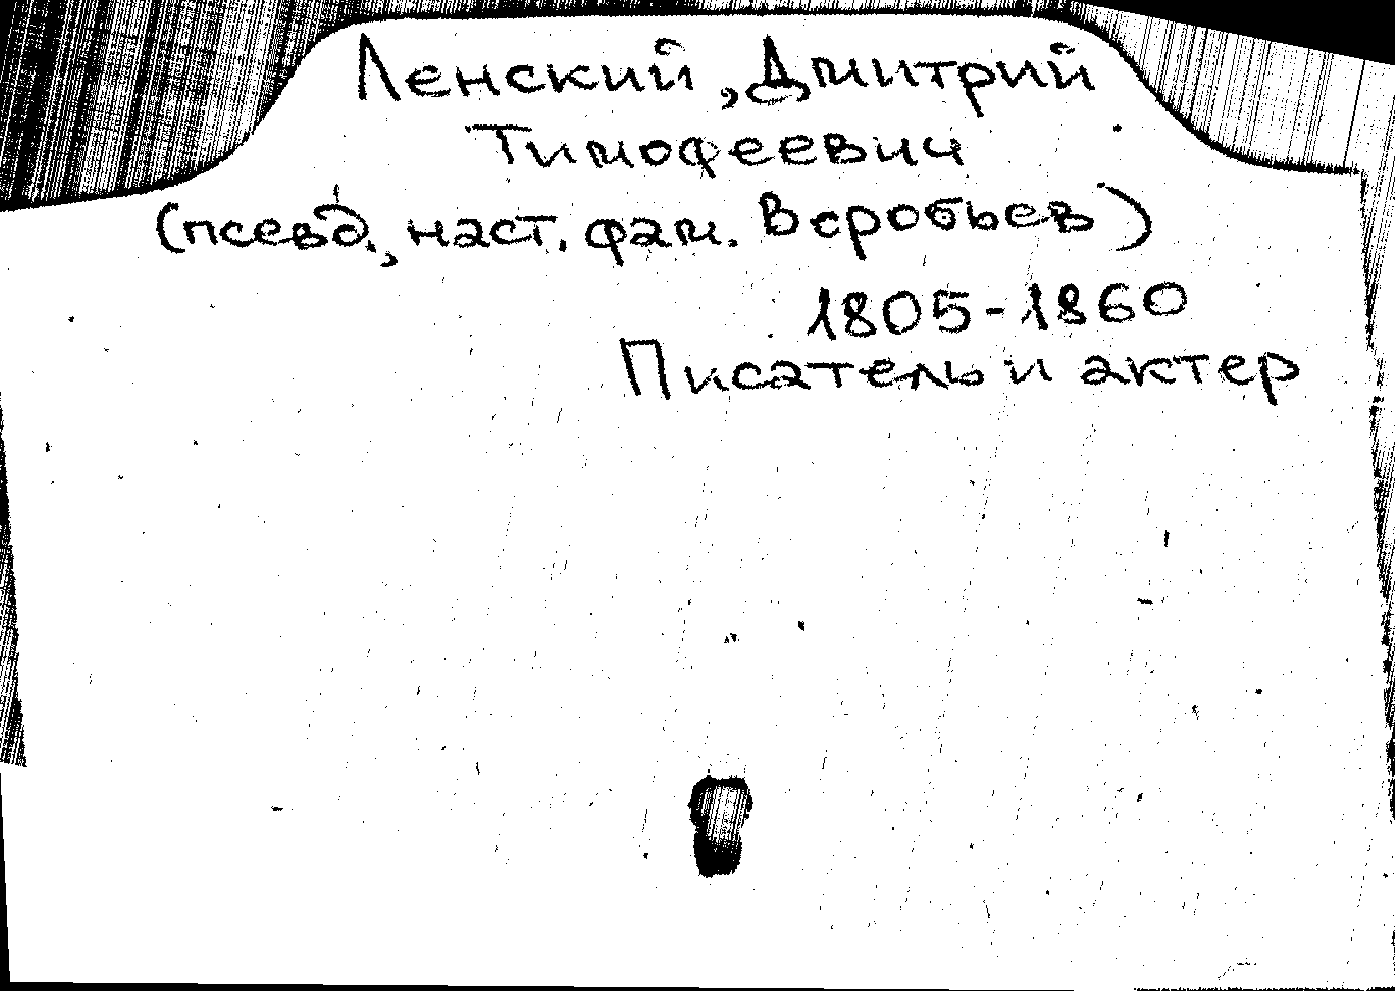 Ленский, Дмитрий
Тимофеевич
(псевд., наст. фам. Воробьев)
1805-1860
Писатель и актер